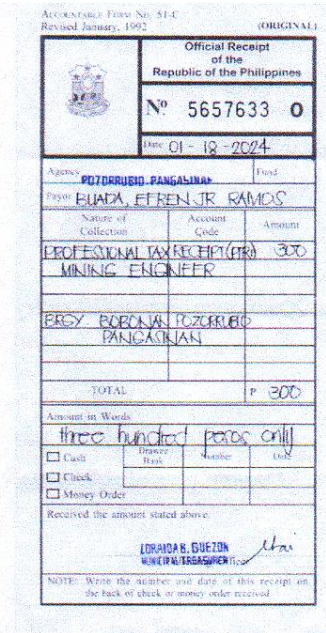 ACCOUNTABLE FORM No. 51-C
Revised January, 1992 (ORIGINAL)
Official Receipt
of the
Republic of the Philippines
Nº 5657633 O
Date 01-18-2024
Agency POZORRUBIO, PANGASINAN Fund
Payor BUADA, EFREN JR RAMOS
Nature of Collection Account Code Amount
PROFESSIONAL TAX RECEIPT (PTR) 300
MINING ENGINEER
BRGY BOBONAN POZORRUBIO
PANGASINAN
TOTAL P 300
Amount in Words
three hundred pesos only
Cash Drawee Bank Number Date
Check
Money Order
Received the amount stated above.
LORAIDA B. GUEZON
MUNICIPAL TREASURER Officer
NOTE: Write the number and date of this receipt on
the back of check or money order received.